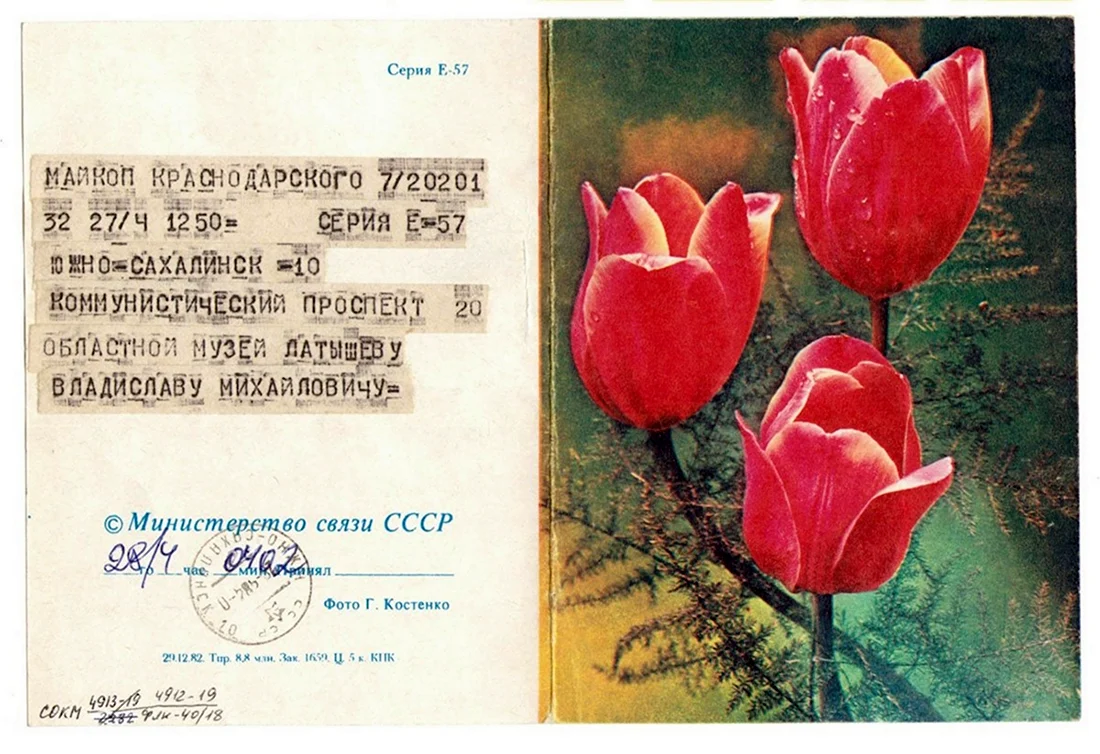 Серия Е-57
МАЙКОП КРАСНОДАРСКОГО 7/20201
32 27/Ч 1250= СЕРИЯ Е=57
ЮЖНО=САХАЛИНСК =10
КОММУНИСТИЧЕСКИЙ ПРОСПЕКТ 20
ОБЛАСТНОЙ МУЗЕЙ ЛАТЫШЕВУ
ВЛАДИСЛАВУ МИХАЙЛОВИЧУ=
© Министерство связи СССР
28/4 го час 0402 мин принял
Фото Г. Костенко
29.12.82. Тир. 8,8 млн. Зак. 1659. Ц. 5 к. КНК
4913-19 4912-19
СОКМ ФЛК-40/18